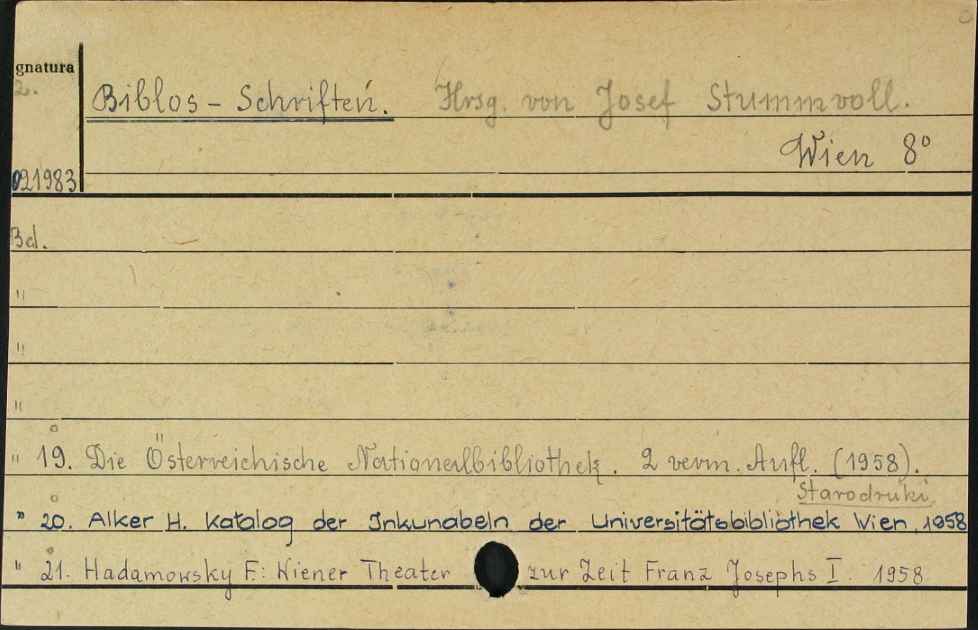 gnatura
2.
Biblos - Schriften. Hrsg. von Josef Stummvoll.
Wien 8°
021983
Bd.
"
"
"
" 19. Die Österreichische Nationalbibliothek. 2 verm. Aufl. (1958).
Starodruki
" 20. Alker H. Katalog der Inkunabeln der Universitätsbibliothek Vien 1958
" 21. Hadamowsky F.: Wiener Theater zur Zeit Franz Josephs I. 1958